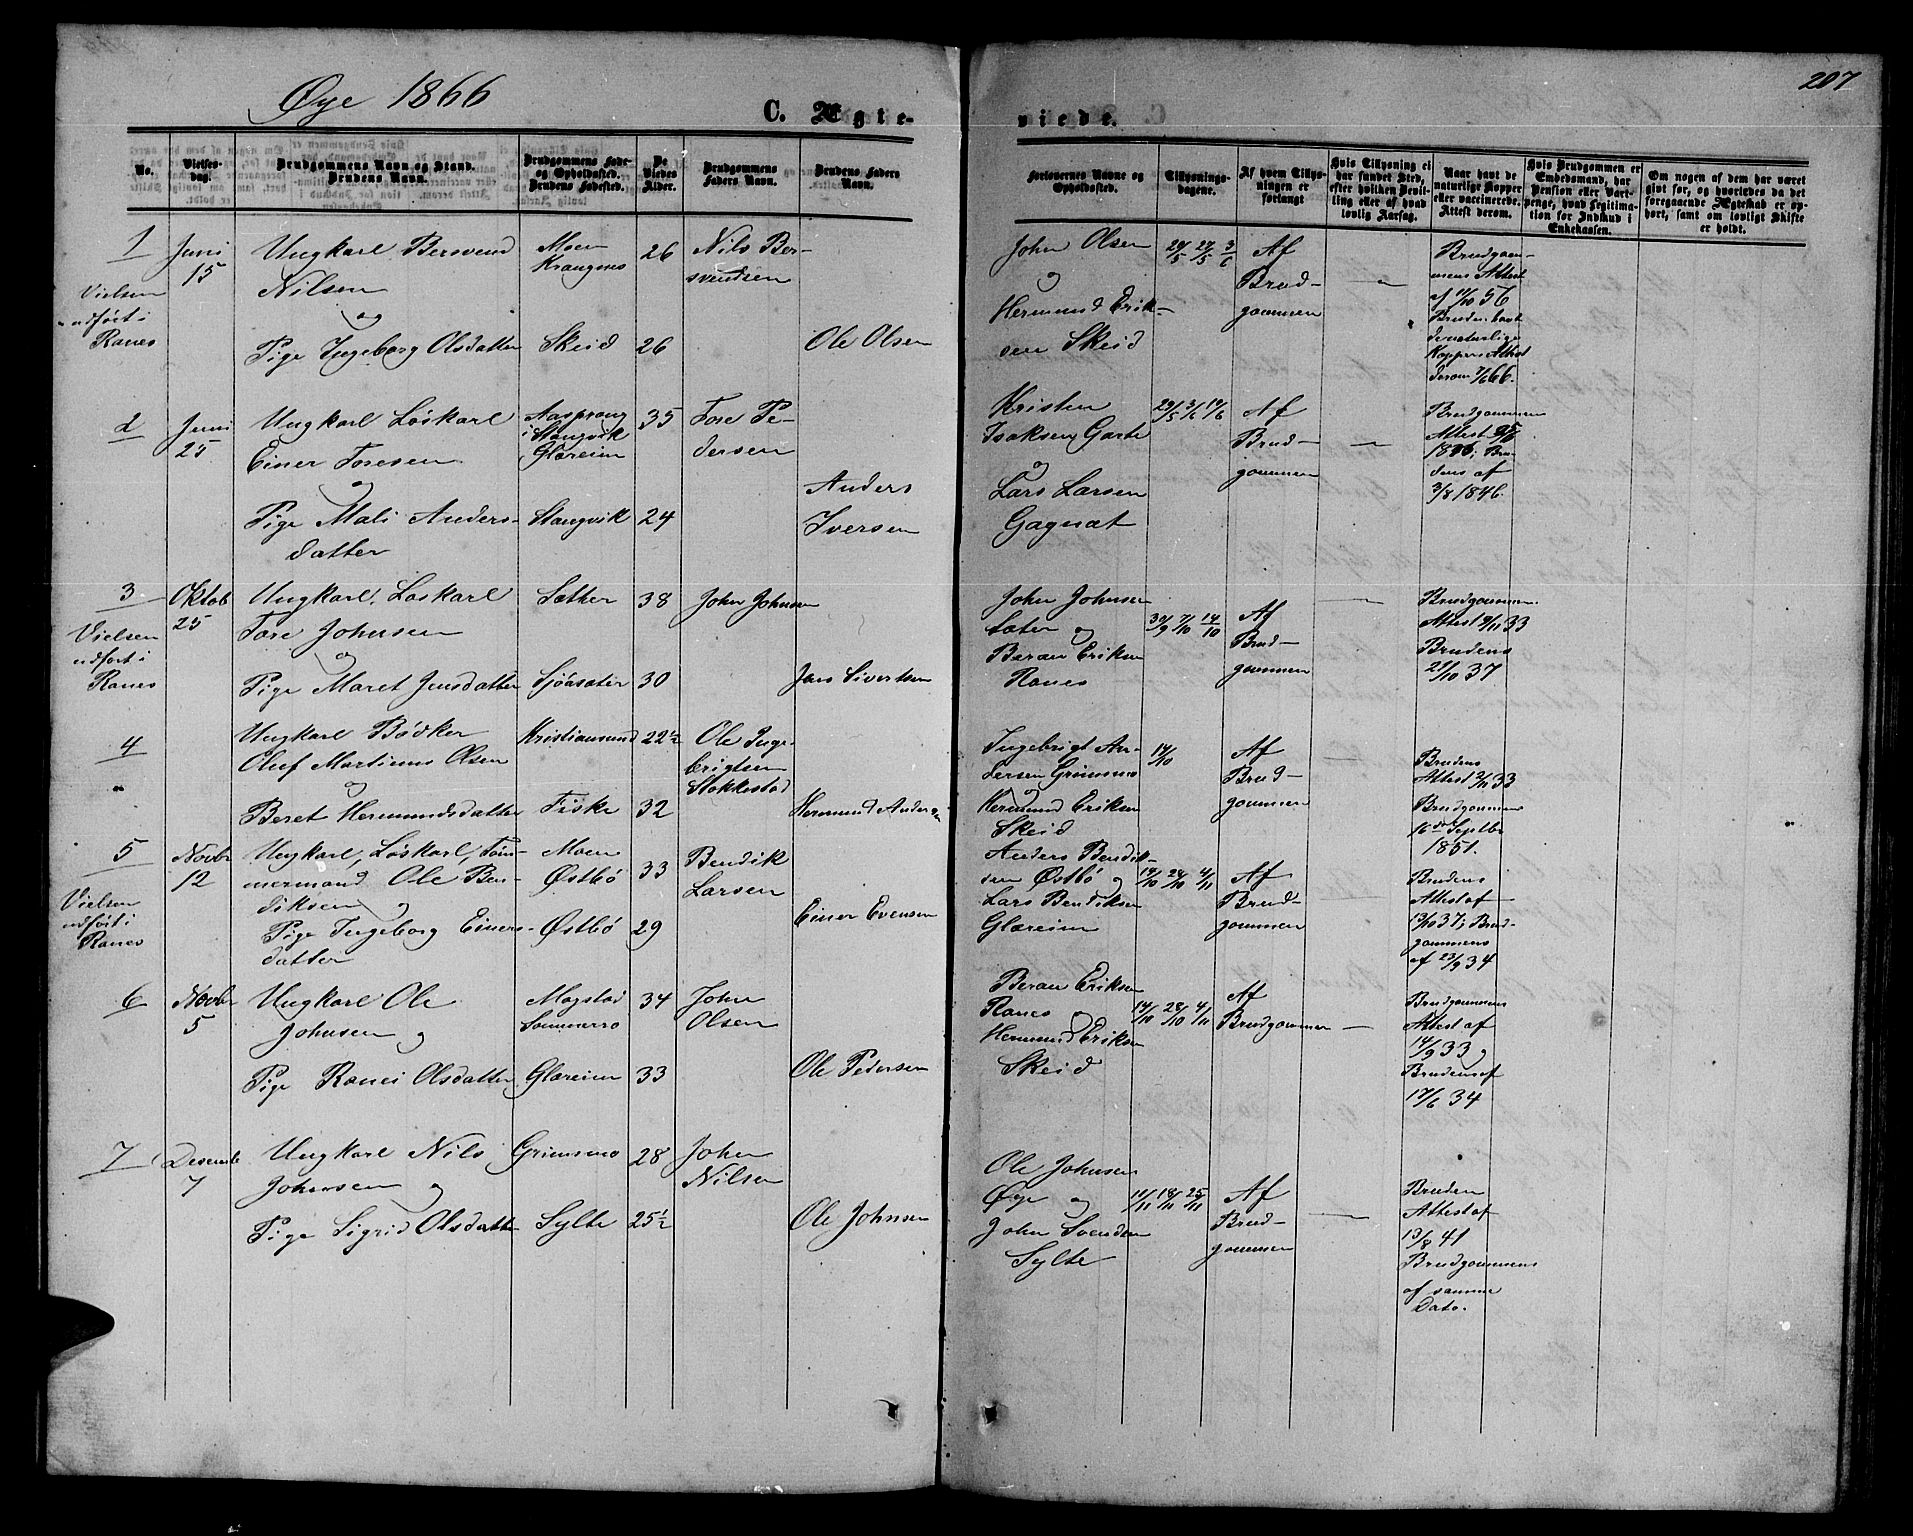 Øye 1866
C. Ægte-
viede.
207
No.
Vielses-
dag.
Brudgommens Navn og Stand.
Brudens Navn.
Brudgommens Føde-
og Opholdssted.
Brudens Fødested.
De
Viedes
Alder.
Brudgommens
Faders Navn.
Brudens Faders
Navn.
Forlovernes Navne og
Opholdssted.
Tillysnings-
dagene.
Af hvem Tillys-
ningen er
forlangt
Hvis Tillysning ei
har fundet Sted,
efter hvilken Bevil-
ling eller af hvad
lovlig Aarsag.
Naar havt de
naturlige Kopper
eller vaccinerede.
Attest derom.
Hvis Brudgommen er
Embedsmand, har
Pension eller Vart-
penge, hvad Legitima-
tion for Indskud i
Enkekassen.
Om nogen af dem har været
gift før, og hvorledes da det
foregaaende Ægteskab er op-
hørt, samt om lovligt Skifte
er holdt.
1
Juni
15
Vielsen
udført i
Ranes
Ungkarl Bersvend
Nilsen
og
Pige Ingeborg Olsdatter
Moen
Krangnes
Skeid
26
26
Nils Ber-
svendsen
Ole Olsen
John Olsen
og
Hermund Erik-
sen Skeid
24/5 27/5 3/6
Af
Brud-
gommen
Brudgom-
mens Attest
af 11/10 56
Bruden havt
de naturlige
Kopper Attest
derom 7/6 66.
2
Juni
25
Ungkarl Løskarl
Einer Toresen
og
Pige Mali Anders-
datter
Aasprong
i Stangvik
Glæreim
Stangvik
35
24
Tore Pe-
dersen
Anders
Iversen
Kristen
Isaksen Garte
og
Lars Larsen
Gagnat
29/5 3/6 10/6
Af
Brud-
gommen
Brudgommen
Attest
dens af
3/8 1846.
3
Oktob
25
Vielsen
udført i
Ranes
Ungkarl, Løskarl
Tore Johnsen
og
Pige Maret Jensdatter
Sæther
Sjøasæter
38
30
John Johnsen
Jens Sivertsen
John Johnsen
Sæter og
Beran Eriksen
Ranes
30/9 7/10 14/10
Af
Brud-
gommen
Brudgommen
Attest 9/11 33
Brudens
29/10 37
4
Ungkarl Bødker
Oluf Martinus Olsen
og
Beret Hermundsdatter
Kristiansund
Fiske
22½
32
Ole Inge-
brigtsen
Stokkestad
Hermund Andersen
Ingebrigt An-
dersen Grimsmo
og
Hermund Eriksen
Skeid
14/10
Af
Brud-
gommen
Brudens
Attest 9/11 33
Brudgommens
16de Septbr
1851.
5
Novbr
12
Vielsen
udført i
Ranes
Ungkarl, Løskarl, Tøm-
mermand Ole Ben-
diksen og
Pige Ingeborg Einers-
datter
Moen
Østbø
Østbø
33
29
Bendik
Larsen
Einer Evensen
Anders Bendik-
sen Østbø og
Lars Bendiksen
Glæreim
14/10 28/10 4/11
Af
Brud-
gommen
Brudens
Attest af
13/10 37; Brud-
gommens
af 23/9 34
6
Novbr
5
Ungkarl Ole
Johnsen og
Pige Ranei Olsdatter
Mogstad
Sommerro
Glæreim
34
33
John
Olsen
Ole Pedersen
Beran Eriksen
Ranes og
Hermund Eriksen
Skeid
14/10 28/10 4/11
Af
Brudgommen
Brudgommens
Attest af
14/9 33,
Brudens af
17/6 34
7
Desemb
7
Ungkarl Nils
Johnsen og
Pige Sigrid Olsdatter
Grimsmo
Sylte
28
25½
John
Nilsen
Ole Johnsen
Ole Johnsen
Øye og
John Svendsen
Sylte
11/11 18/11 25/11
Af
Brud-
gommen
Bruden
Attest af
13/8 41
Brudgommens
af samme
Dato.